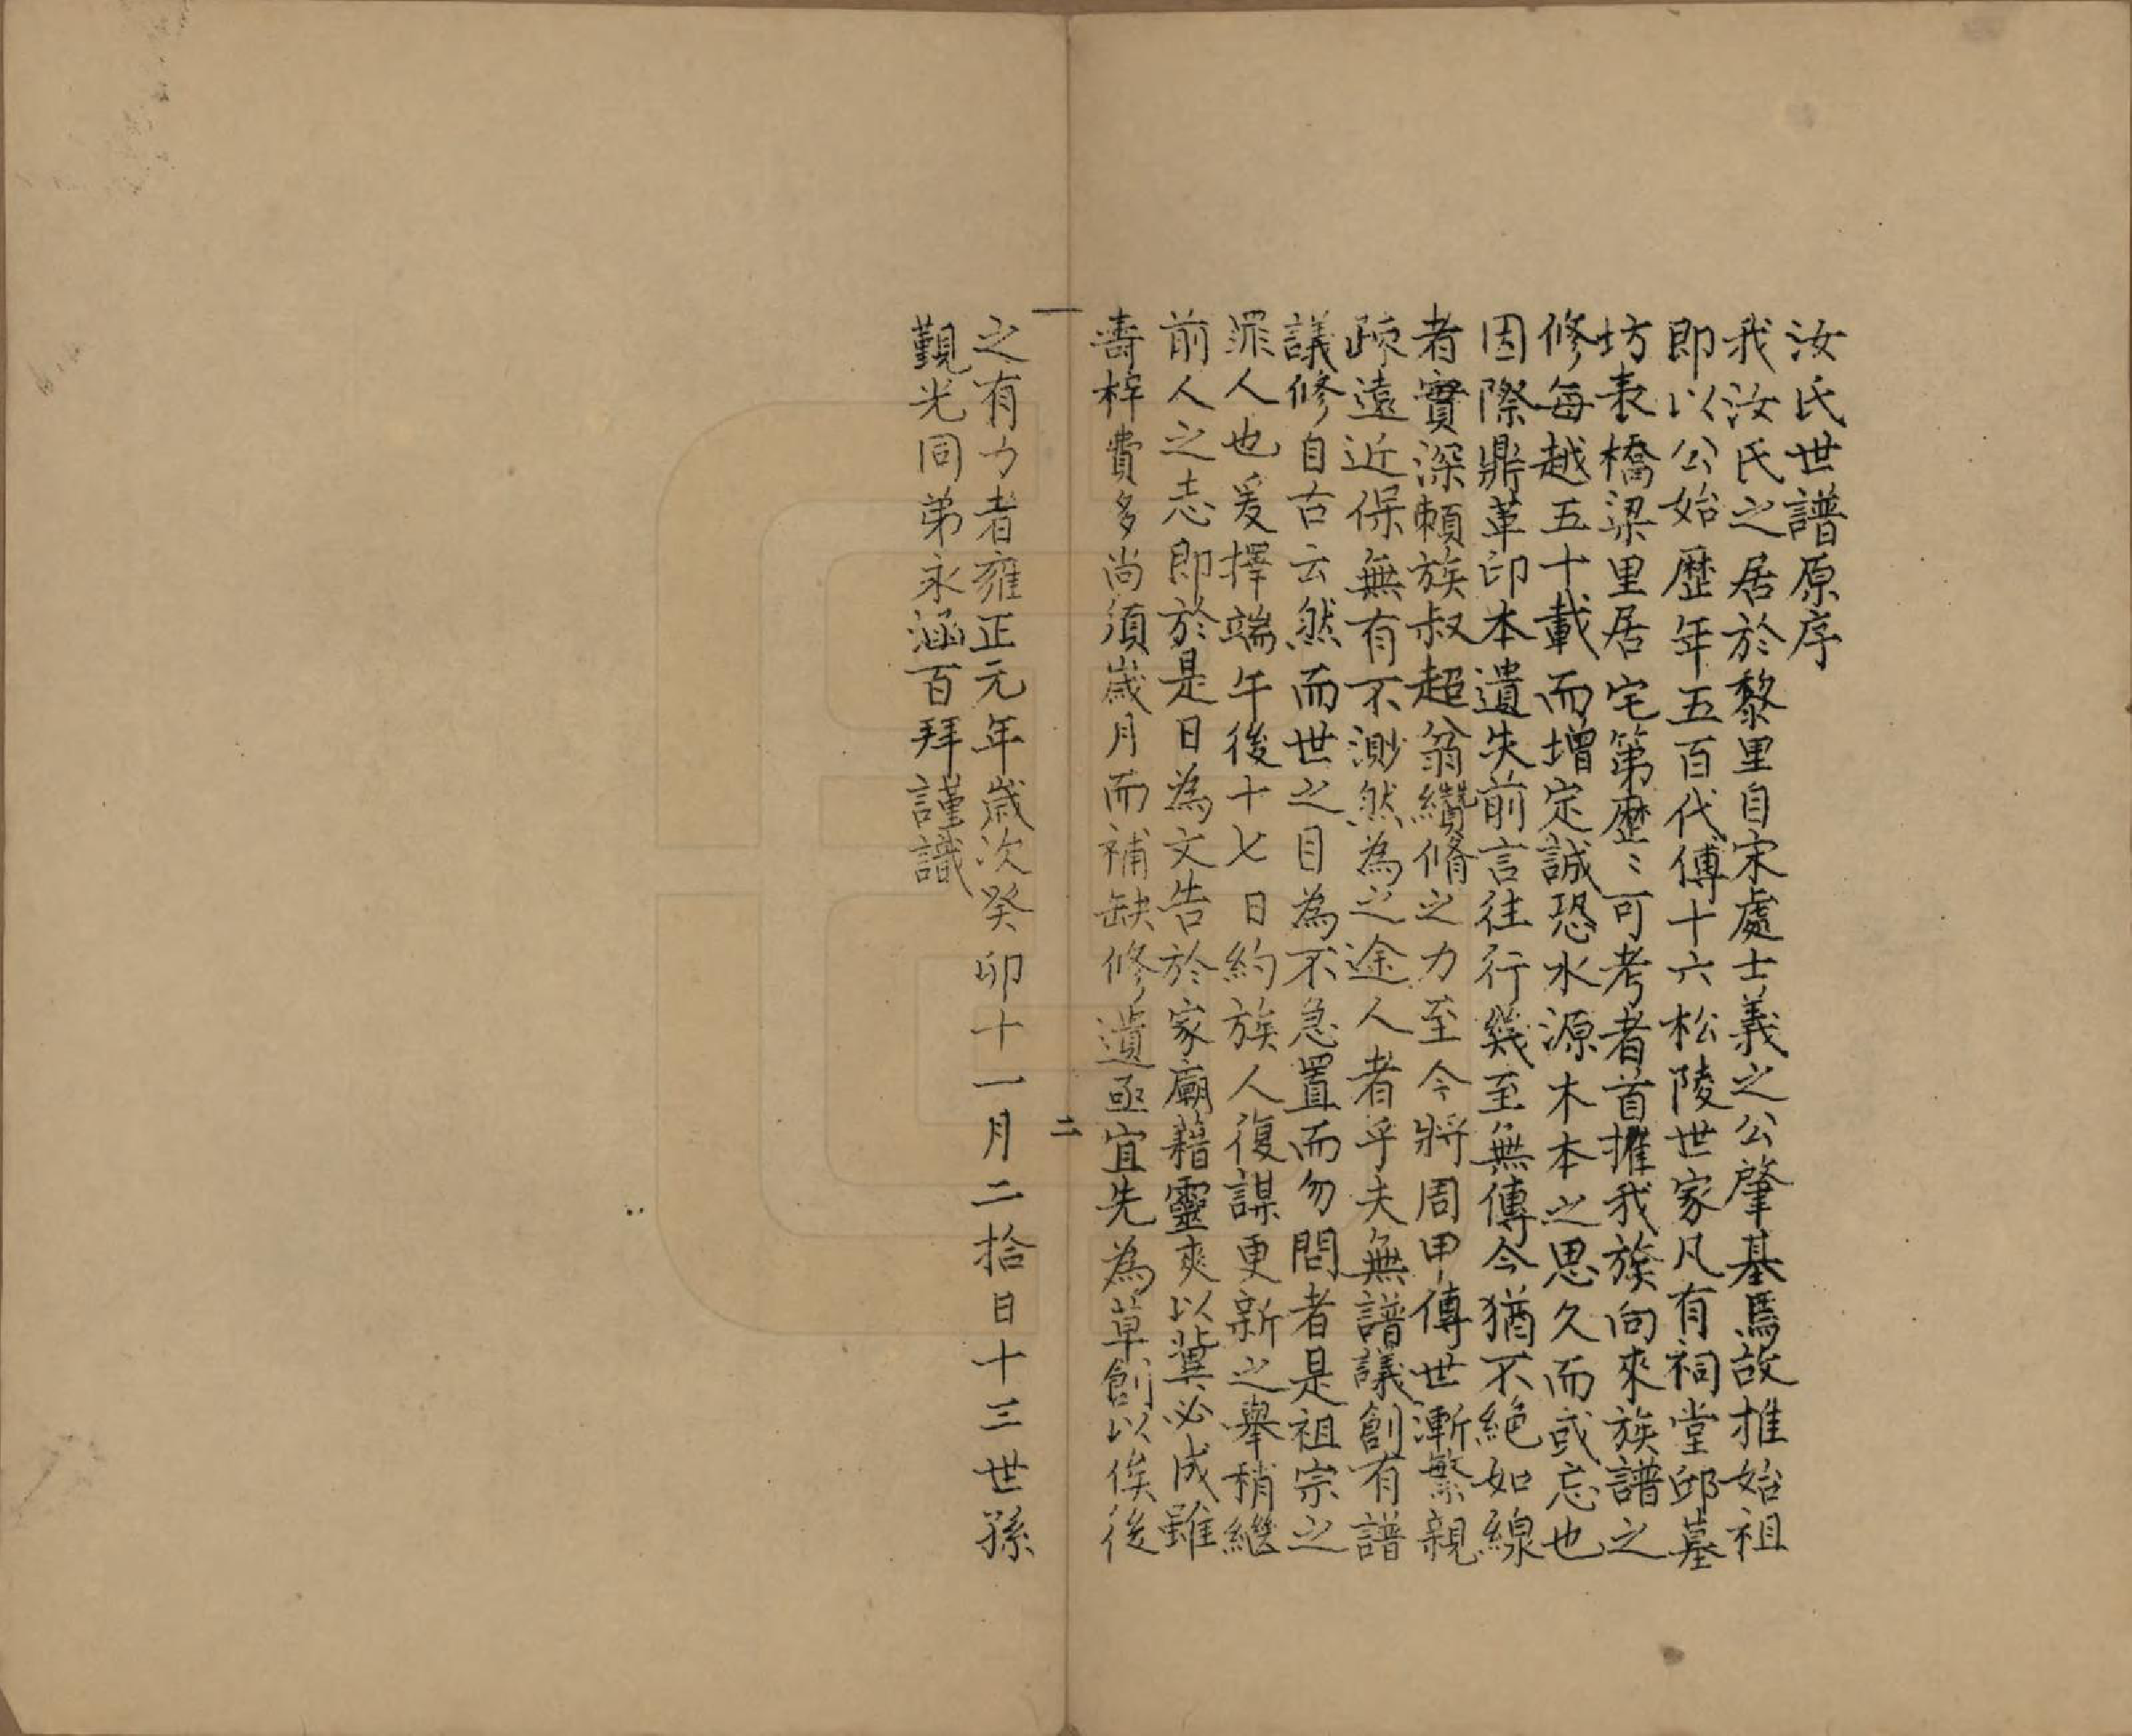 汝氏世譜原序
我汝氏之居於黎里自宋處士義之公肇基焉故推始祖
即以公始歷年五百代傳十六松陵世家凡有祠堂邱墓
坊表橋梁里居宅第歷〻可考者首推我族向來族譜之
修每越五十載而增定誠恐水源木本之思久而或忘也
因際鼎革印本遺失前言往行幾至無傳今猶不絕如線
者實深賴族叔超翁纘脩之力至今將周甲傳世漸繁親
疎遠近保無有不測然為之途人者乎夫無譜議創有譜
議修自古云然而世之目為不急置而勿問者是祖宗之
罪人也爰擇端午後十七日約族人復謀更新之舉稍繼
前人之志即於是日為文告於家廟藉靈爽以冀必成雖
壽梓費多尚須歲月而補缺修遺亟宜先為草創以俟後
一 二
之有力者雍正元年歲次癸卯十一月二拾日十三世孫
覲光同弟永涵百拜謹識